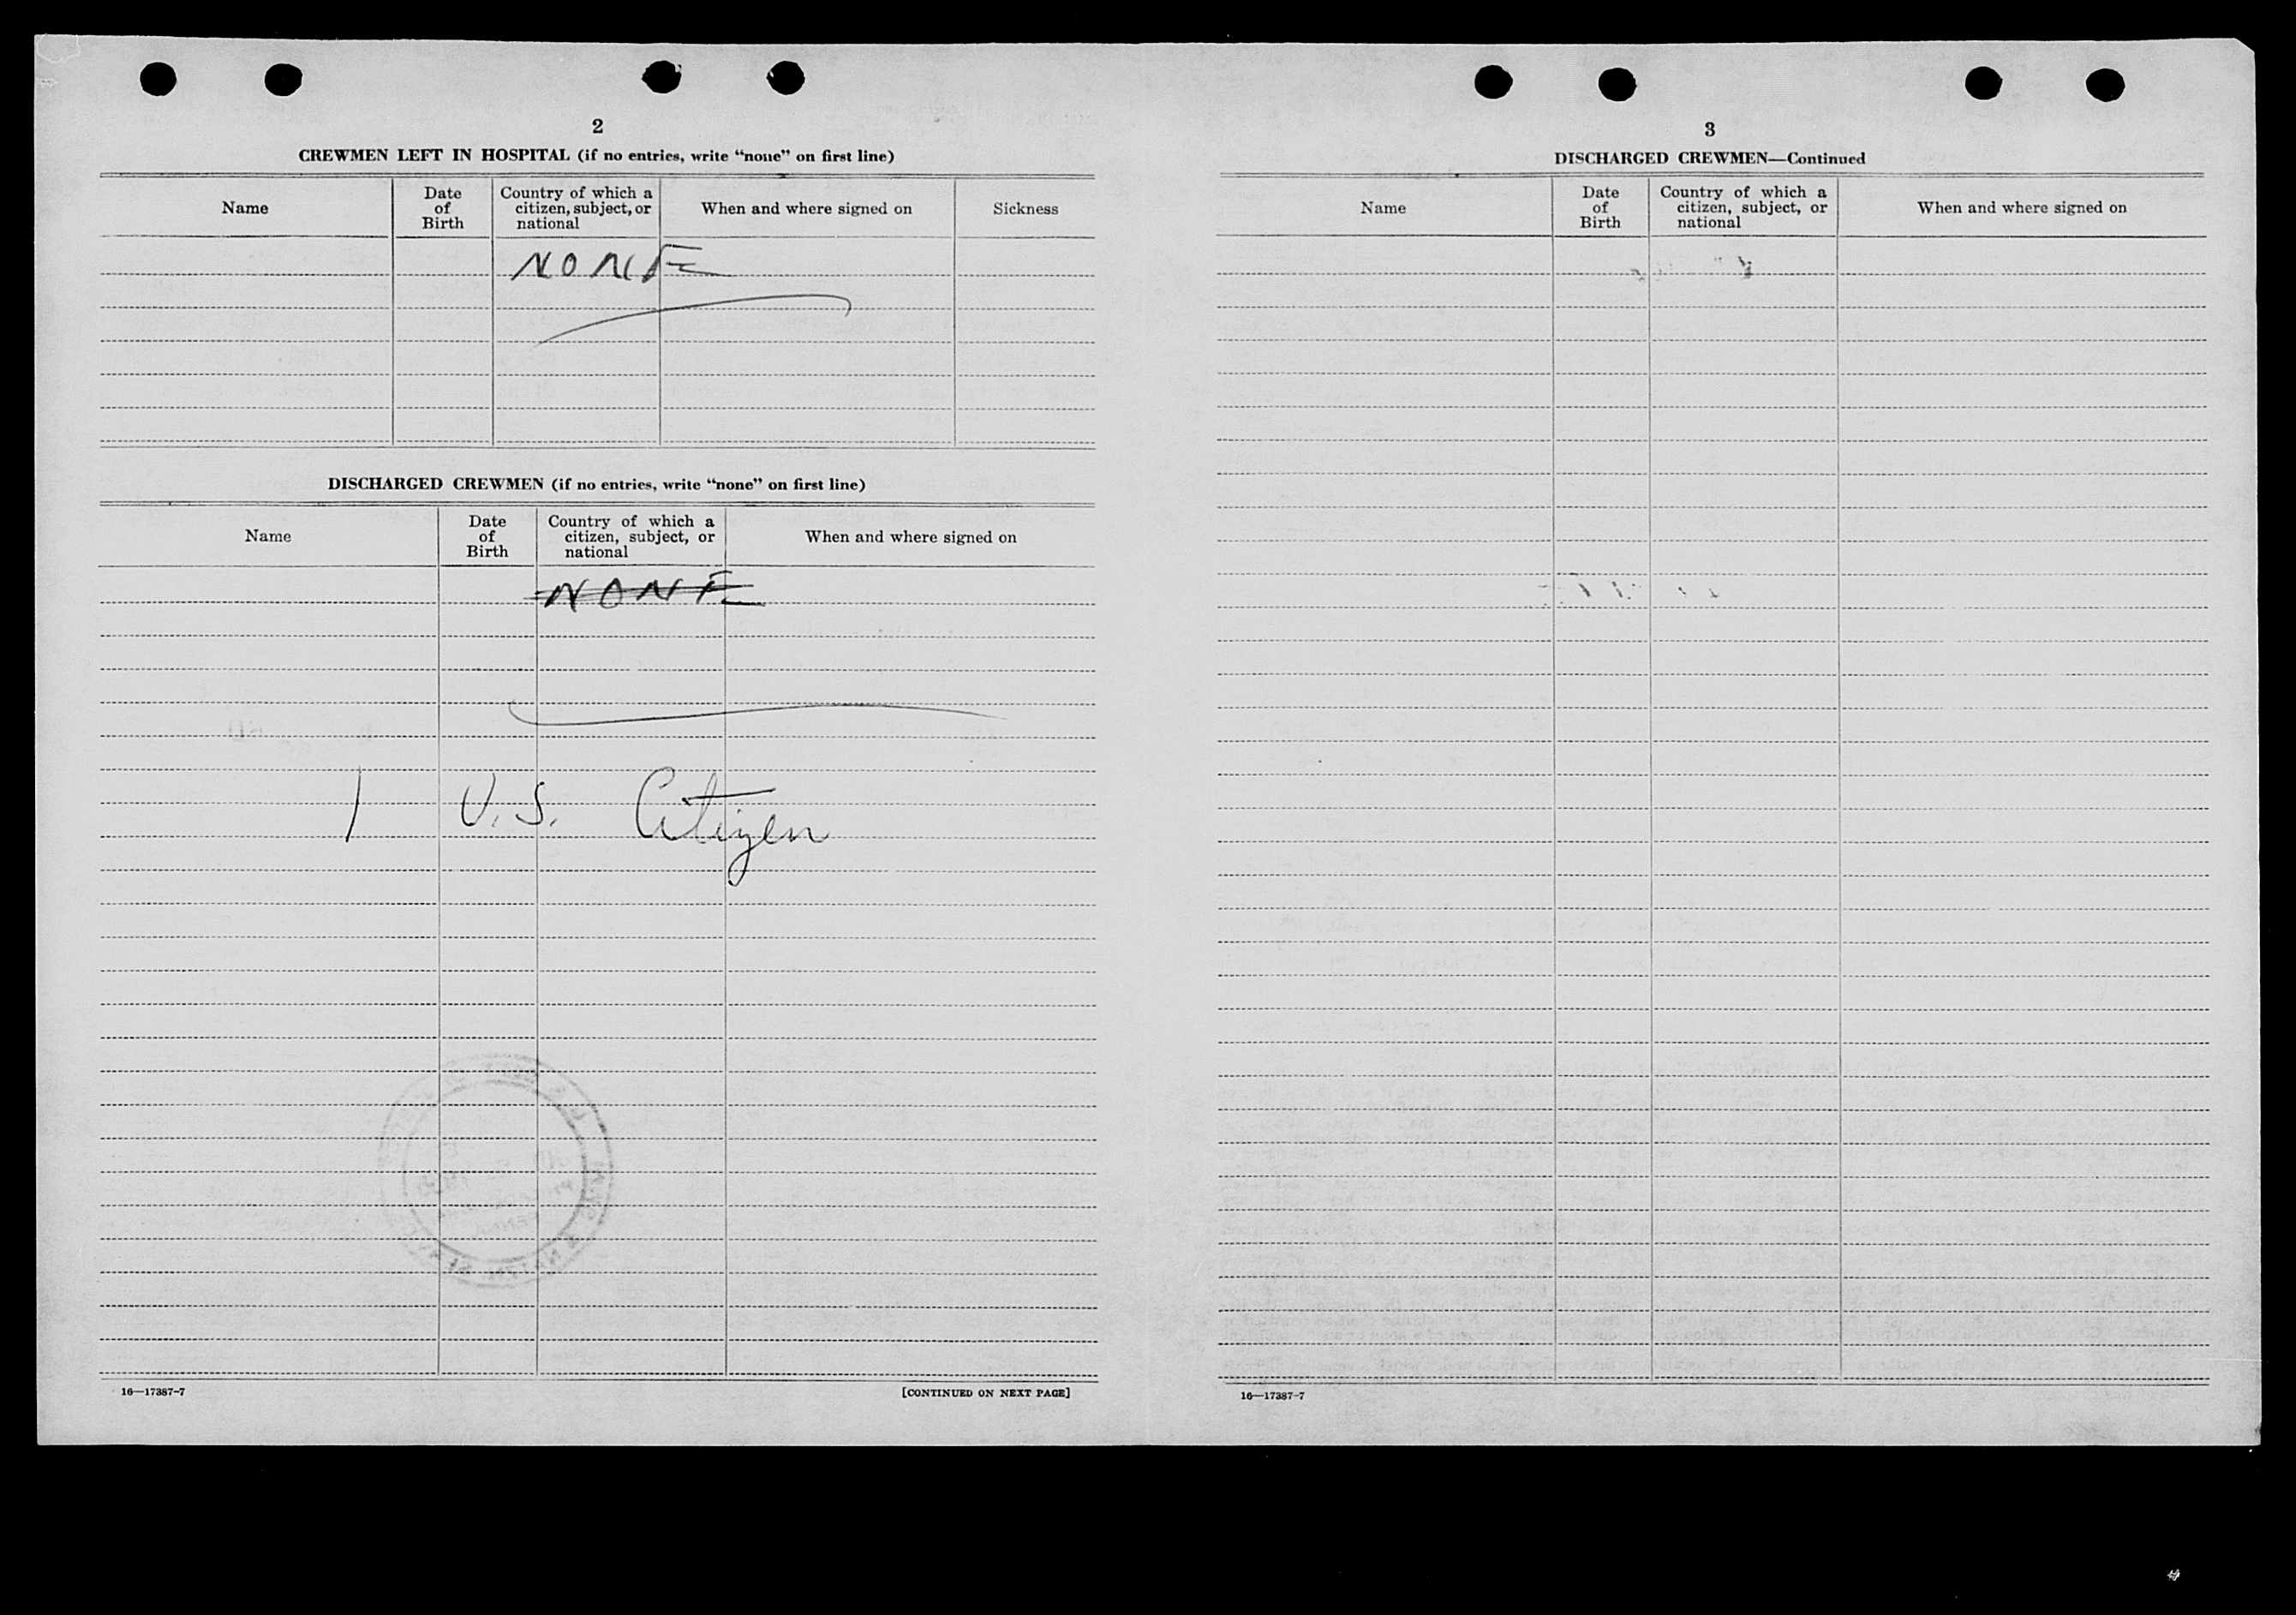 2
CREWMEN LEFT IN HOSPITAL (if no entries, write “none” on first line)
Name
Date of Birth
Country of which a citizen, subject, or national
When and where signed on
Sickness
NONE
DISCHARGED CREWMEN (if no entries, write “none” on first line)
Name
Date of Birth
Country of which a citizen, subject, or national
When and where signed on
NONE
1 U.S. Citizen
16—17387-7
[CONTINUED ON NEXT PAGE]
3
DISCHARGED CREWMEN—Continued
Name
Date of Birth
Country of which a citizen, subject, or national
When and where signed on
16—17387-7